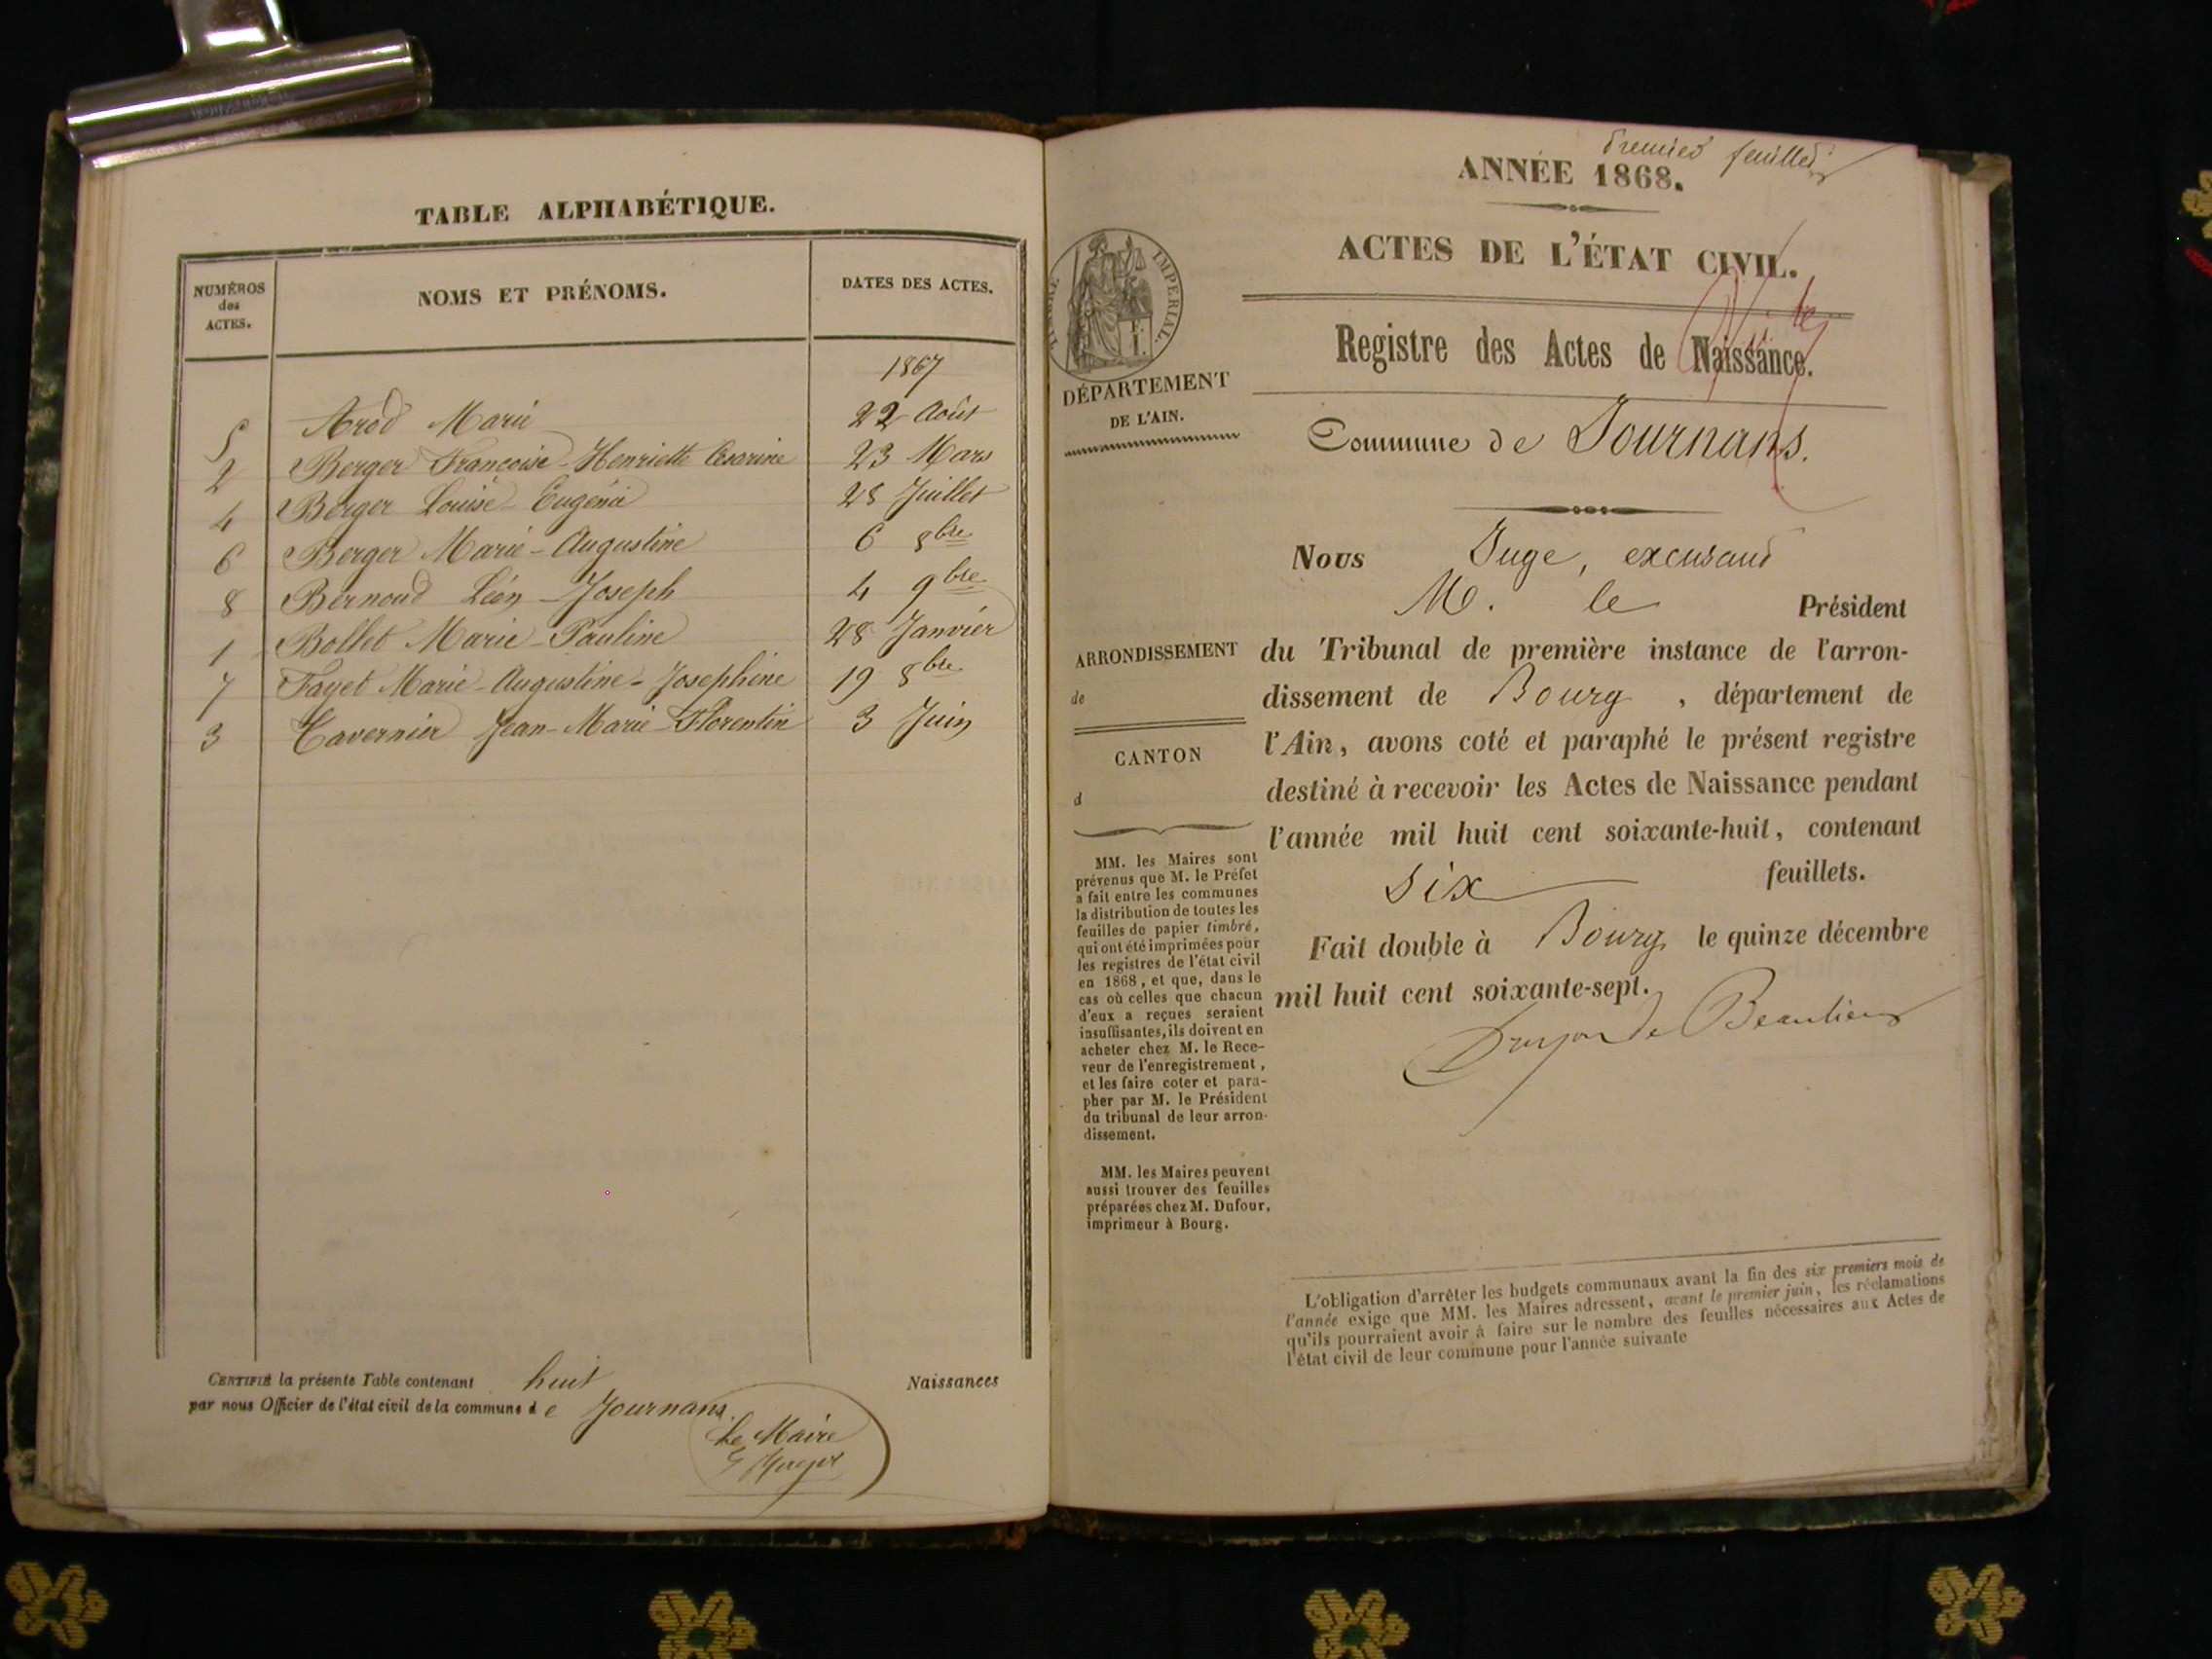 TABLE ALPHABÉTIQUE.
NUMÉROS des ACTES.
NOMS ET PRÉNOMS.
DATES DES ACTES.
1867
5 Arod Marie 22 Août
2 Berger Françoise-Henriette Césarine 23 Mars
4 Berger Louise Eugénie 28 Juillet
6 Berger Marie-Augustine 6 8bre
8 Bernoud Léon-Joseph 4 9bre
1 Bollet Marie-Pauline 28 Janvier
7 Fayet Marie-Augustine-Josephine 19 8bre
3 Tavernier Jean-Marie-Florentin 3 Juin
CERTIFIÉ la présente Table contenant huit Naissances
par nous Officier de l'état civil de la commune de Journans.
Le Maire
Premier feuillet
ANNÉE 1868.
ACTES DE L'ÉTAT CIVIL.
Registre des Actes de Naissance.
TIMBRE IMPERIAL.
DÉPARTEMENT
DE L'AIN.
Commune de Journans.
Nous Juge, excusant
M. le Président
du Tribunal de première instance de l'arron-
dissement de Bourg, département de
l'Ain, avons coté et paraphé le présent registre
destiné à recevoir les Actes de Naissance pendant
l'année mil huit cent soixante-huit, contenant
six feuillets.
Fait double à Bourg le quinze décembre
mil huit cent soixante-sept.
de Beaulieu
ARRONDISSEMENT
de
CANTON
d
MM. les Maires sont
prévenus que M. le Préfet
a fait entre les communes
la distribution de toutes les
feuilles de papier timbré,
qui ont été imprimées pour
les registres de l'état civil
en 1868, et que, dans le
cas où celles que chacun
d'eux a reçues seraient
insuffisantes, ils doivent en
acheter chez M. le Rece-
veur de l'enregistrement,
et les faire coter et para-
pher par M. le Président
du tribunal de leur arron-
dissement.
MM. les Maires peuvent
aussi trouver des feuilles
préparées chez M. Dufour,
imprimeur à Bourg.
L'obligation d'arrêter les budgets communaux avant la fin des six premiers mois de
l'année exige que MM. les Maires adressent, avant le premier juin, les réclamations
qu'ils pourraient avoir à faire sur le nombre des feuilles nécessaires aux Actes de
l'état civil de leur commune pour l'année suivante